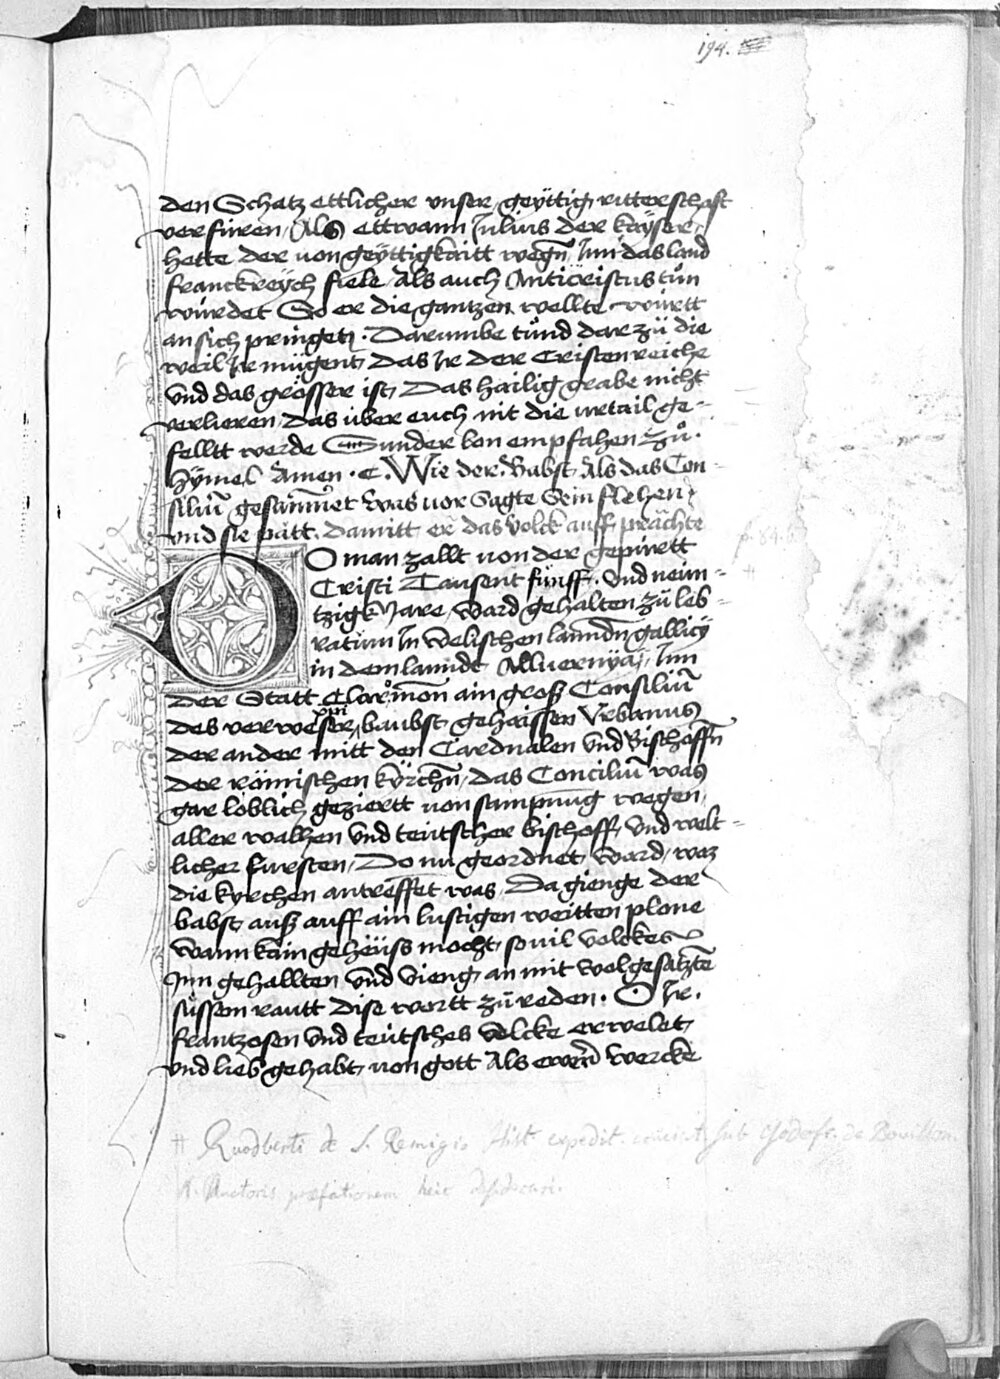 194.
den Schatz ettlicher vnser geÿttig ritterschaft
verfüren / Als ettwann Julius der kaÿser /
hette der von geÿttigkaitt wegñ Inn das land
franckreÿch fiele / Als auch Anticristus tůn
würdet So er die gantzen wellte württ
an sich pringen · Darumbe tůnd darzů die
weil Ir mügent, das Ir der Cristenreiche
vnd das grösser ist, Das hailig grabe nicht
verlieren / das über euch nit die urtail ge-
felltt werde Sunder lon empfahen zů ·
Hÿmel Amen · C. Wie der Babst Als das Con-
siliū gesammet was vor Sagte Sein flehen
vnd sie patt. damitt er das volck auff prächte
DO man zallt von der gepürtt
Cristi Tausent fünff · vnd neun-
tzigk Jare / ward gehalten zů les-
ratium In welischen lanndñ gallicÿ
in dem lanndt Alluernÿaj / Inn
der Statt Claromon ain groß Consiliū
des verwesers baubst gehaissen Vrbanus
xviij
der ander mitt den Cardnalen vnd Bischoffñ
der römischen kÿrchñ / das Conciliū was
gar loblich geziertt von sampnūg wegen /
aller walhen vnd teütscher bischoff, vnd welt-
licher fursten / Do nu geordnet ward / waz
die kyrchen antreffet was / Da gienge der
babst auß auff ain lustigen weitten plone
wann kain geheüss mocht, souil volckes
Inn gehallten vnd vieng an mit wolgesatzte
süssen rautt dise wortt zů reden · O Ir.
frantzosen vnd teütsches volcke erwelet,
vnd lieb gehabt, von gott Als ewerñ wercke
# Ruodberti de S. Remigio Hist. expedit. cruciat. sub Godofr. de Bouillon.
N. Auctoris præfationem heic desiderari.